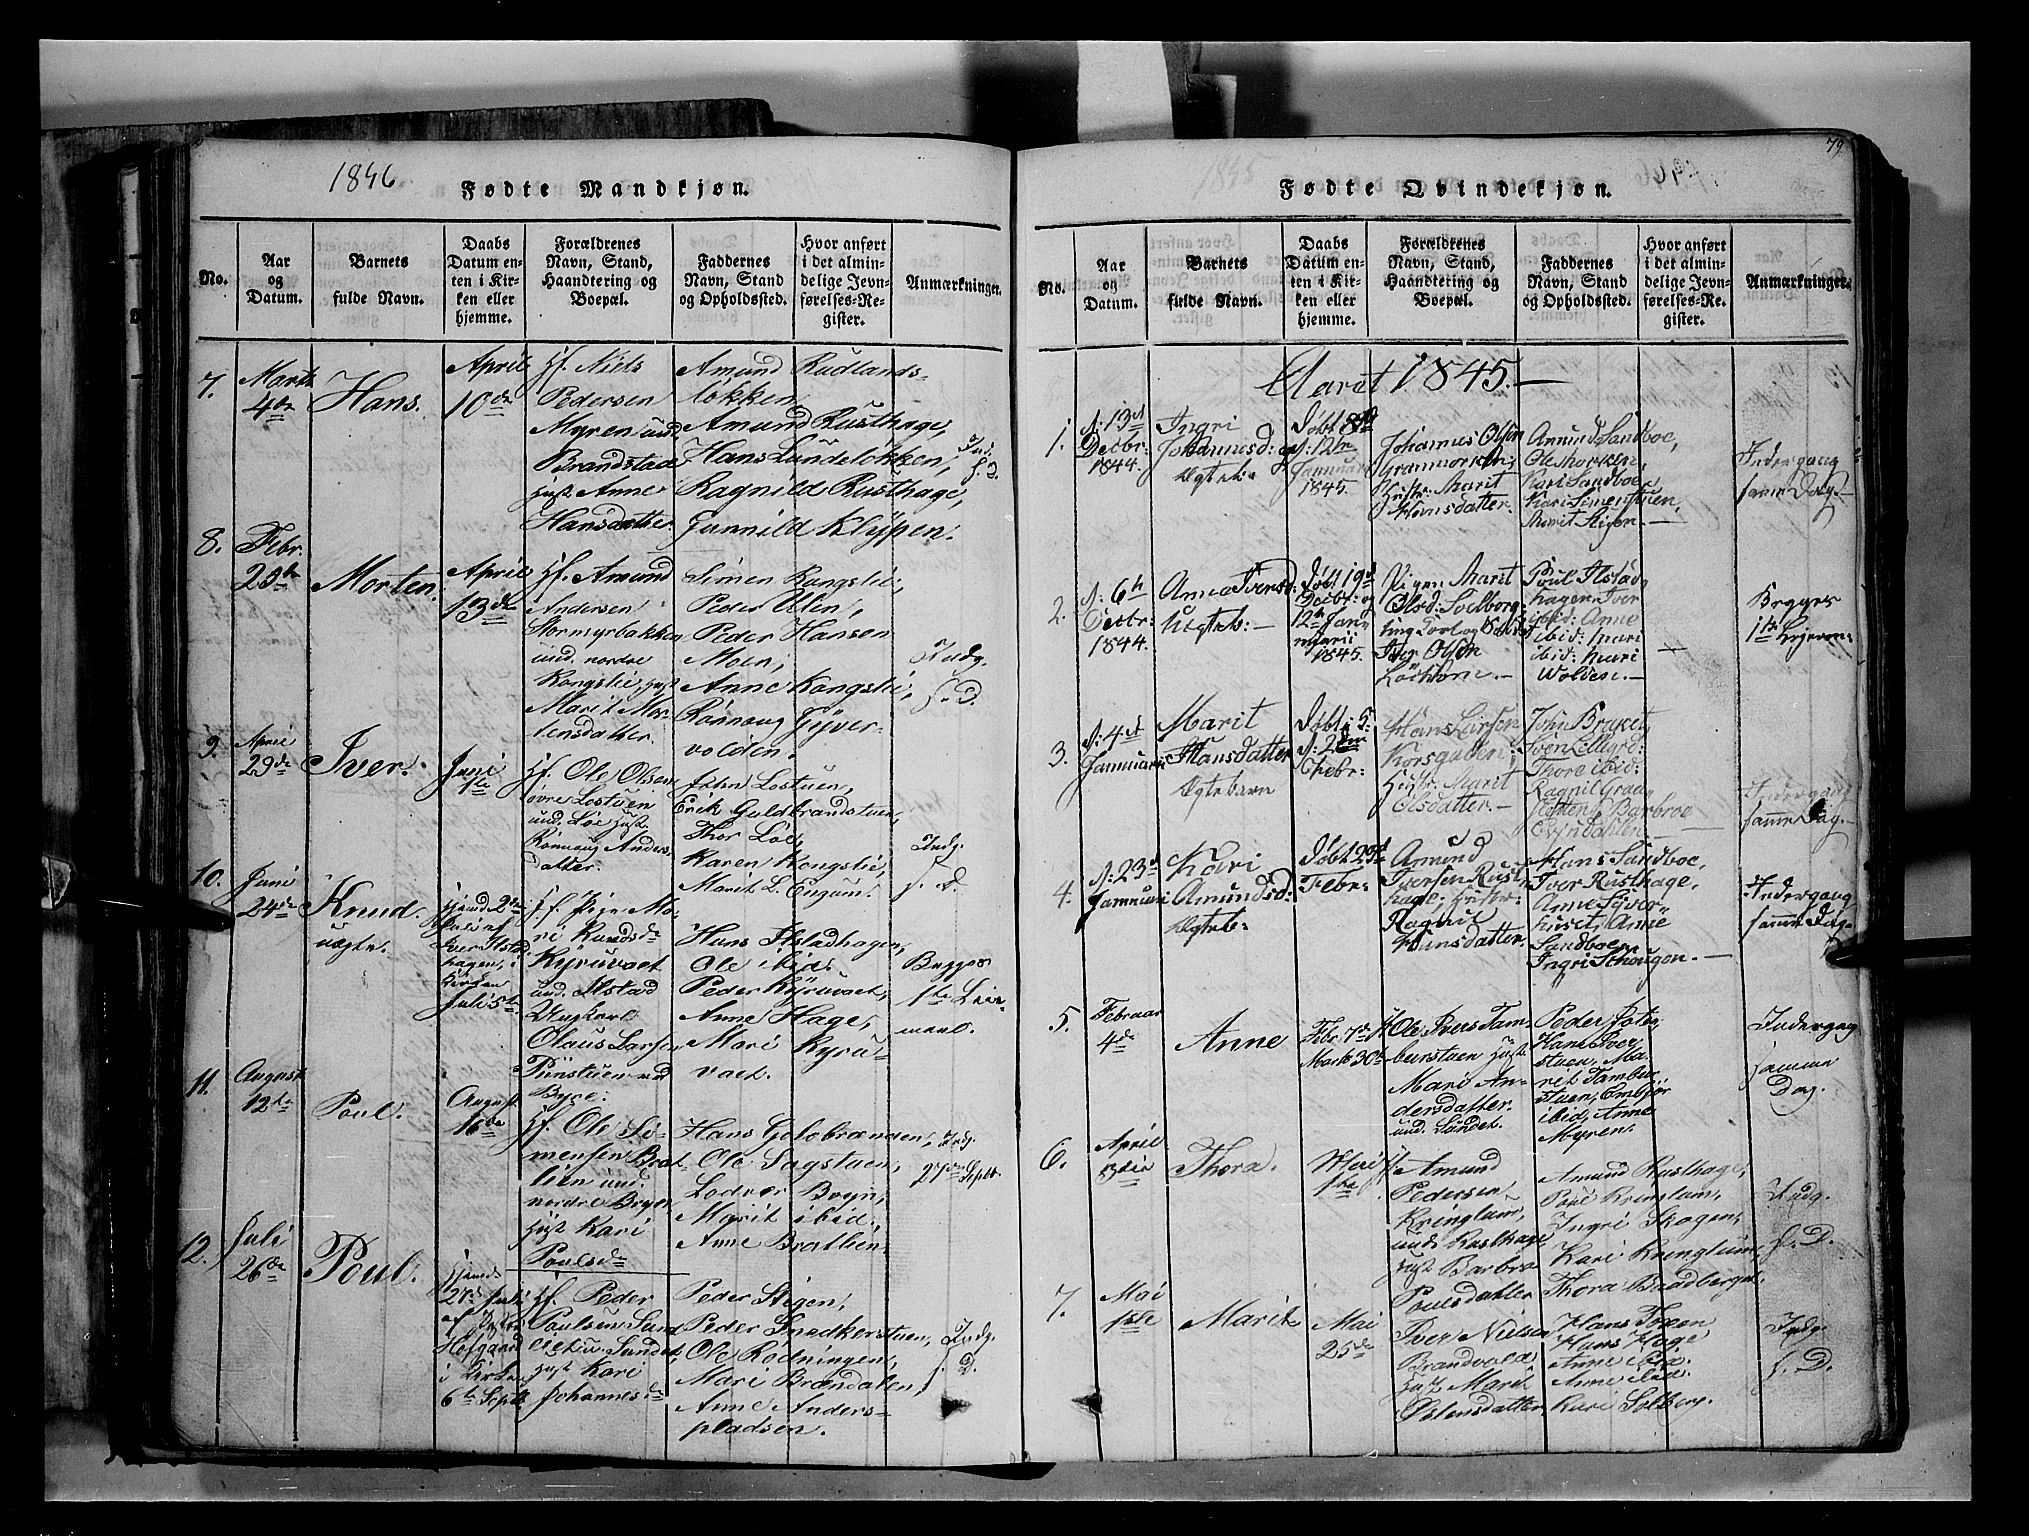 1846
Fødte Mandkjøn.
No.
Aar
og
Datum.
Barnets
fulde Navn.
Daabs
Datum en-
ten i Kir-
ken eller
hjemme.
Forældrenes
Navn, Stand,
Haandtering og
Boepæl.
Faddernes
Navn, Stand
og Opholdssted.
Hvor anført
i det almin-
delige Jevn-
førelses-Re-
gister.
Anmærkninger.
7.
Marts
4de
Hans.
April
10de
Niels
Pedersen
Myren und.
Brandstad
Anne
Hansdatter
Amund Rudlands-
løkken,
Amund Rusthage,
Hans Lundeløkken,
Ragnild Rusthage,
Gunnild Klyppen.
Indg.
s. D.
8.
Febr.
Morten.
April
13de
Amund
Andersen
Stormyrbakken
und. nordre
Kongslie,
Marit Mor-
tensdatter.
Simen Kongslie,
Peder Ulen,
Peder Hansen
Moen,
Anne Kongslie,
Rønnaug Gyver-
volden.
Indg.
s. D.
9.
April
29de
Iver.
Juni
1ste
Ole Olsen
øvre Lostuen
und. Løe
Rønnaug Anders-
datter.
John Lostuen,
Erik Guldbrandstuen,
Thor Løe,
Karen Kongslie,
Marit L. Engum.
Indg.
s. D.
10.
Juni
24de
Knud.
uægte.
af
Iver Ilstad-
hagen, i
Kirken
Juli 5te
Pige Ma-
ri Knudsd.
Kyruvaet
und. Ilstad
Ungkarl
Olaus Larsen
Hans Ilstadhagen,
Ole ibid.
Peder Kyruvaet,
Anne Hage,
Mari Kyru-
vaet.
Begges
1te Leier-
maal.
11.
August
12te
Poul.
August
16de
Ole Si-
mensen Brat-
lien und.
nordre Bryn
Kari
Poulsd.
Hans Golobrænden,
Ole Sagstuen,
Lodvær Bryn,
Marit ibid.,
Anne Bratlien.
Indg.
27de Septbr.
12.
Juli
26de
Poul.
27de Juli
af
Hofgaard
i Kirken
6te Septb.
Peder
Poulsen Sund-
Kari
Johannesd.
Peder Stigen,
Peder Snedkerstuen,
Ole Rødningen,
Mari Brændalen,
Anne Anders-
pladsen.
Indg.
s. D.
79.
Fødte Qvindekjøn.
No.
Aar
og
Datum.
Barnets
fulde Navn.
Daabs
Datum en-
ten i Kir-
ken eller
hjemme.
Forældrenes
Navn, Stand,
Haandtering og
Boepæl.
Faddernes
Navn, Stand
og Opholdssted.
Hvor anført
i det almin-
delige Jevn-
førelses-Re-
gister.
Anmærkninger.
Aaret 1845.
1.
d: 13de
Decbr:
1844.
Ingri
Johannesd:
Ægteb:
Døbt
d: 12te
Januari
1845.
Johannes Olsen
Marit
Hansdatter.
Amund Sandboe,
Kari Sandboe,
Kari Simenstuen,
Marit Stigen.
Indergang
samme Dag.
2.
d: 6te
Decbr:
1844.
Anne Iversd:
Uægteb:
Døbt 19de
Decbr: og
12te Jan-
uarii
1845.
Pigen Marit
Olsd:
Iver Olsen
Poul Ilstad-
hagen, Iver
ibid: Anne
ibid: Mari
ibid: Mari
Wolden.
Begges
1te
3.
d: 4de
Januarii
Marit
Hansdatter
Ægtebarn
Døbt
d: 2den
Febr:
Hans Larsen
Korsgaden;
Marit
Olsdatter.
John
Iver
Thore ibid:
Ragnil
Barbroe
Indergang
samme Dag.
4.
d: 23de
Januarii
Kari
Amundsd:
Ægteb:
Døbt 23de
Febr:
Amund
Iversen Rust-
hage,
Ragnil
Hansdatter.
Hans Sandboe,
Iver Rusthage,
Anne Syver-
huset, Anne
Sandboen
Ingri Schougen.
Indergang
samme Dag.
5.
Februar
4de
Anne
Febr. 7de
Marts 30te
Ole Ivers. Tam-
burstuen
Mari An-
dersdatter
und. Sundet.
Peder
stuen, Ma-
rit Tambur-
stuen, Embjør
ibid, Anne
Myren.
Indergag
samme
Dag.
6.
April
3die
Thora.
1ste
Amund
Pedersen
Kringlum,
und. Rusthage
Barbro
Poulsdatter
Amund Rusthage,
Poul Kringlum,
Ingri Skogen,
Kari Kringlum,
Thora Bradberget.
Indg.
s. D.
7.
Mai
1ste
Marit
Mai
25de
Iver Nielsen
Brandvold
Marit
Østensdatter
Hans
Hans Hage
Anne ibid.
Anne ibid.
Kari Solberg.
Indg.
s. D.